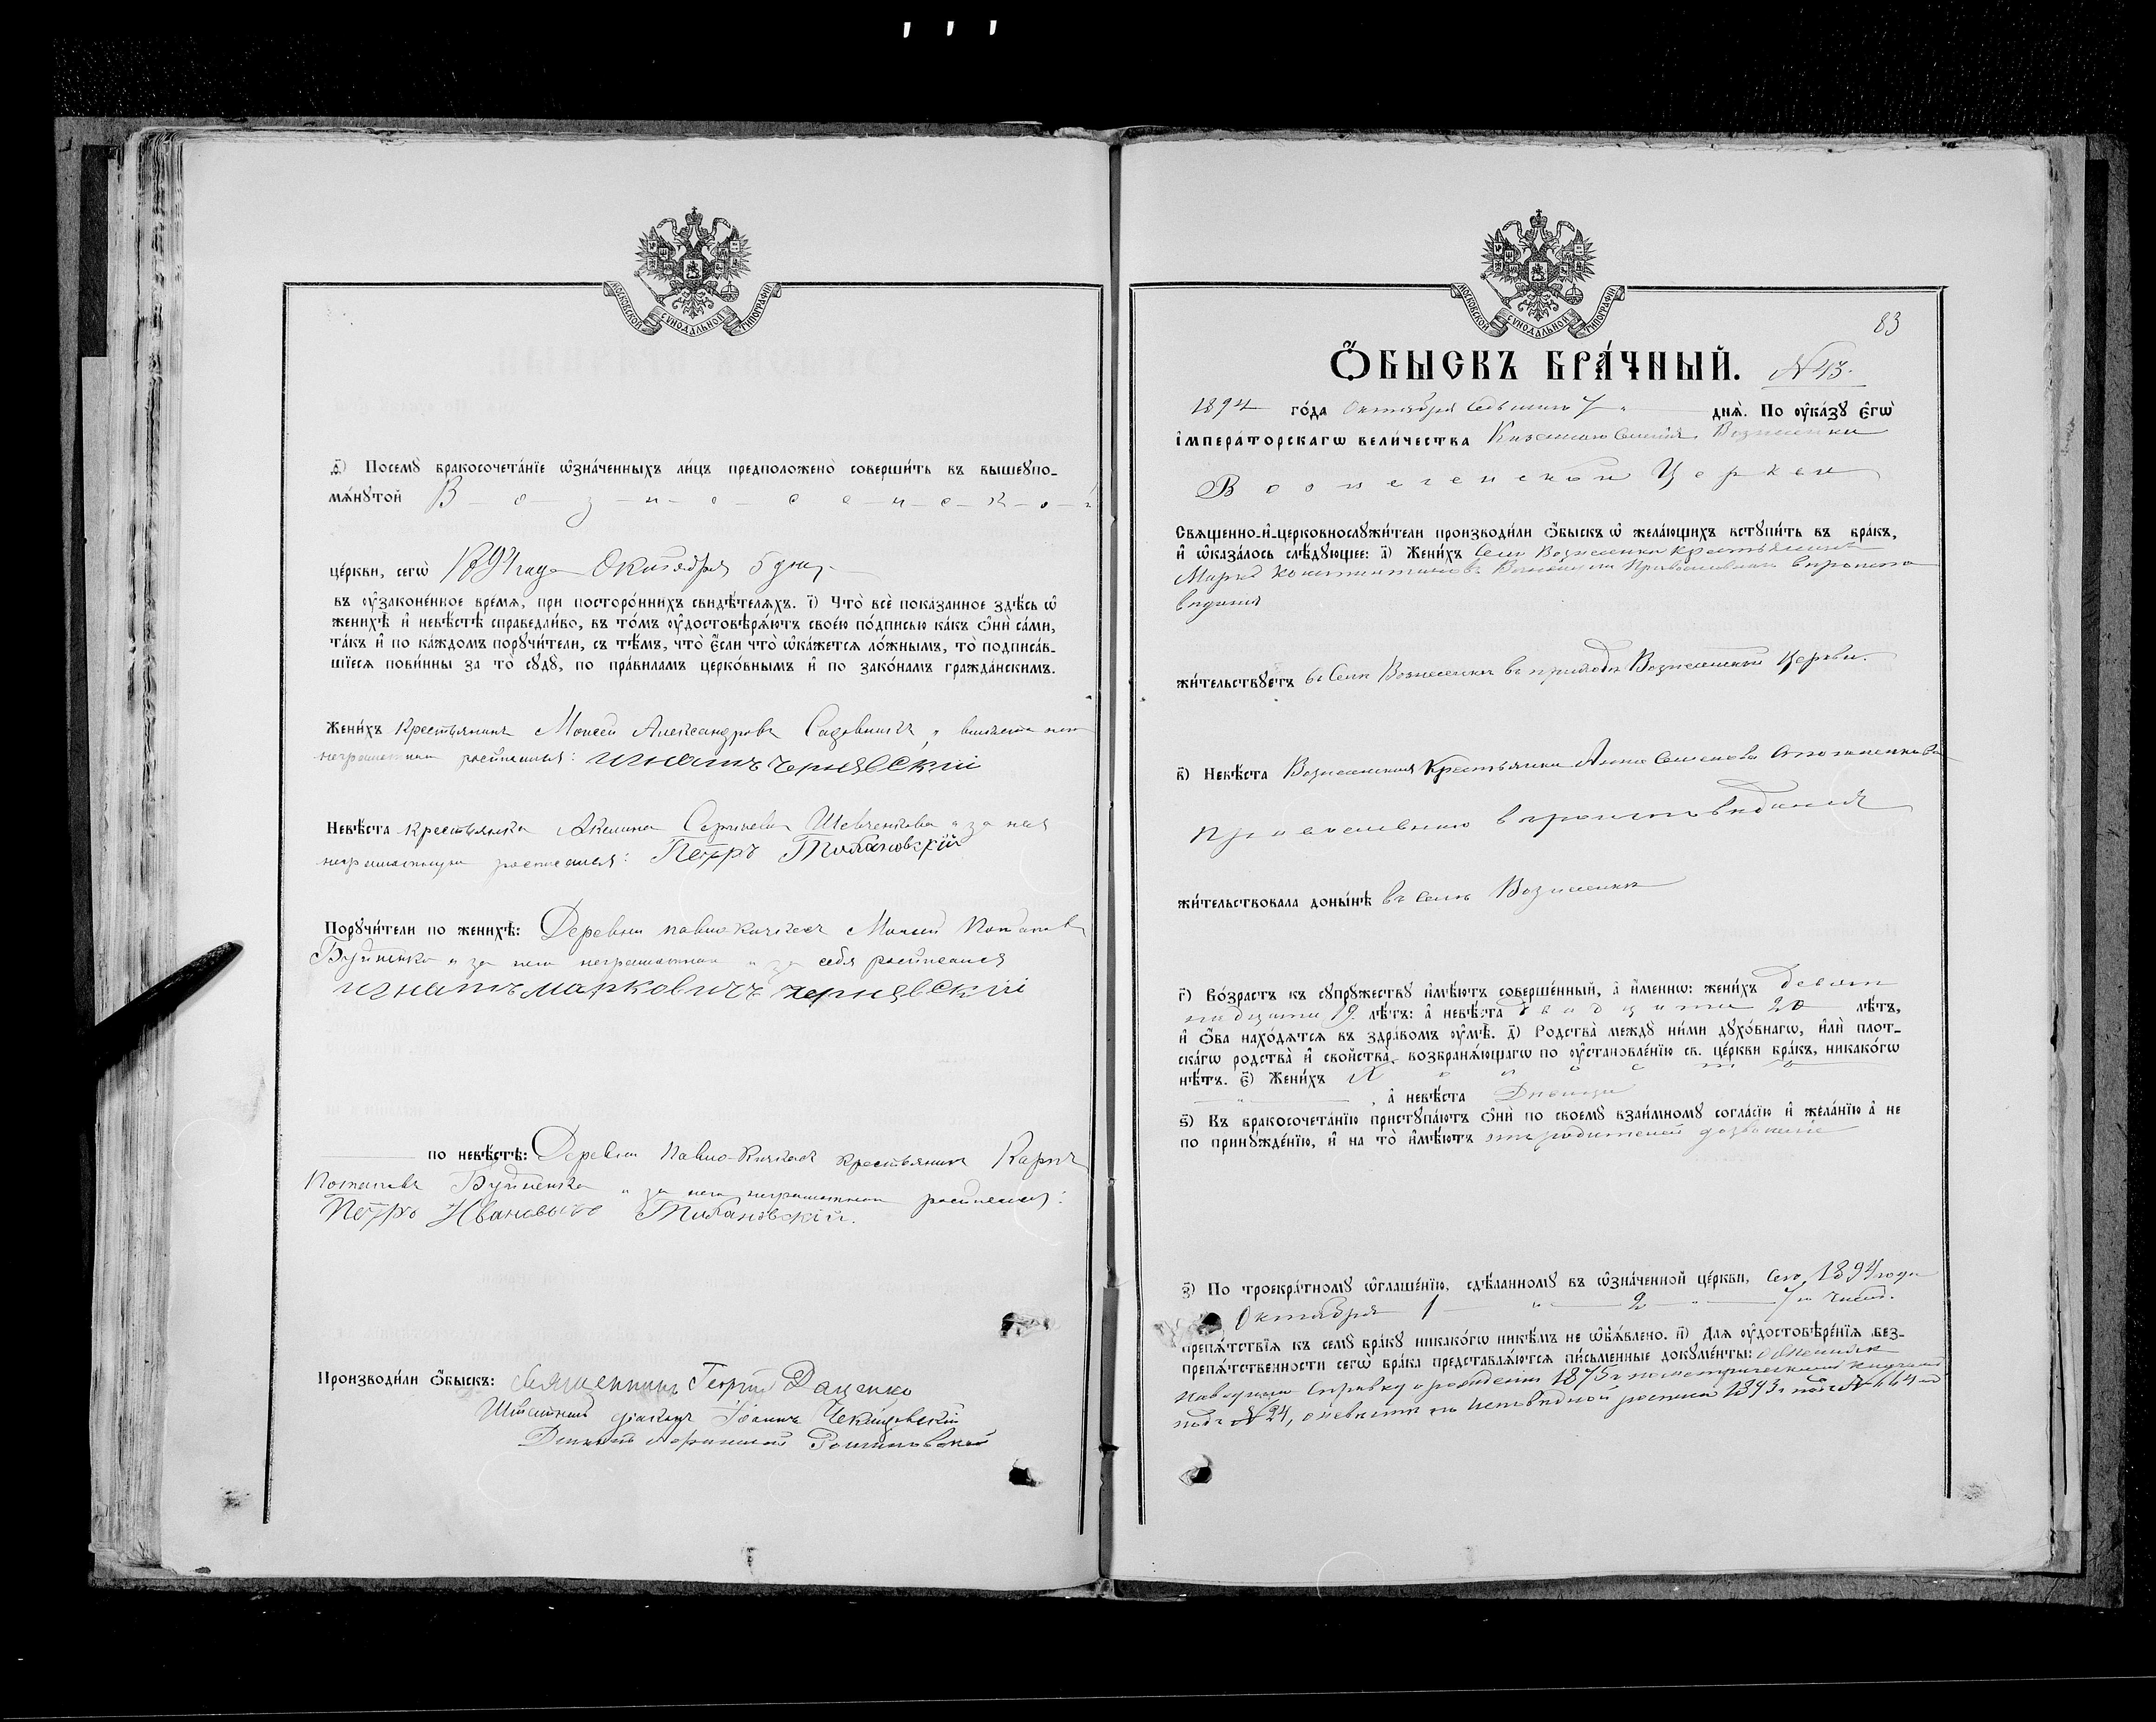 МОСКОВСКОЙ СѴНОДАЛЬНОЙ ТИПОГРАФІИ
ѳ҃) Посемꙋ бракосочета́нїе ѡ҆зна́ченныхъ ли́цъ предположено̀ соверши́ть въ вышеꙋпо-
мѧ́нꙋтой В-о-з-н-е-с-е-н-с-к-о-й
це́ркви, сегѡ̀ 1894 года Октября 5 дня,
въ ᲂу҆зако́ненное вре́мѧ, при посторо́ннихъ свидѣ́телѧхъ. і҃) Что̀ всѐ пока́занное здѣ́сь ѡ҆
женихѣ̀ и҆ невѣ́стѣ справедли́во, въ то́мъ ᲂу҆достовѣрѧ́ютъ свое́ю по́дписью ка́къ ѻ҆нѝ са́ми,
та́къ и҆ по ка́ждомъ порꙋчи́тели, съ тѣ́мъ, что̀ є҆́сли что̀ ѡ҆ка́жетсѧ ло́жнымъ, то̀ подписа́в-
шїесѧ пови́нны за то̀ сꙋдꙋ̀, по пра́виламъ церко́внымъ и҆ по зако́намъ гражда́нскимъ.
Жени́хъ Крестьянинъ Моисей Александровъ Садовничъ, а вместо него
неграмотнаго росписался: Игнатъ Чернявский
Невѣ́ста крестьянка Акилина Сергиева Шевченкова а за нея
неграмотную росписался: Петръ
Порꙋчи́тели по женихѣ̀: Деревни Павло-Кичкаса Потапов
а за него неграмотнаго и за себя росписался
Игнатъ Марковичъ Чернявский
по невѣ́стѣ: Деревни Павло-Кичкаса крестьянинъ Карпъ
Потаповъ а за него неграмотнаго росписался:
Петръ Ивановичъ
Производи́ли ѻ҆́быскъ: Священникъ Георгій Даценко
Штатный діаконъ Іоаннъ
МОСКОВСКОЙ СѴНОДАЛЬНОЙ ТИПОГРАФІИ
83
Ѻ҆́БЫСКЪ БРА́ЧНЫЙ. №43.
1894 го́да Октября седьмого 7 днѧ̀. По ᲂу҆ка́зꙋ є҆гѡ̀
і҆мпера́торскагѡ вели́чества Казенного Селенія Вознесенки
Вознесенской Церкви
Свѧщенно-и҆-церковнослꙋжи́тели производи́ли ѻ҆́быскъ ѡ҆ жела́ющихъ встꙋпи́ть въ бра́къ,
и҆ ѡ҆каза́лось слѣ́дꙋющее: а҃) Жени́хъ Села Вознесенки крестьянинъ
Марко Константиновъ Православнаго вероиспо
ведания
жи́тельствꙋетъ въ Селе Вознесенки въ приходе Вознесенской Церкви.
в҃) Невѣ́ста Вознесенская Крестьянка Анна Семенова
Православнаго вероисповедания
жи́тельствовала доны́нѣ въ селе Вознесенки
г҃) Во́зрастъ къ сꙋпрꙋ́жествꙋ и҆мѣ́ютъ соверше́нный, а҆ и҆́менно: жени́хъ девят
надцати 19 лѣ́тъ: а҆ невѣ́ста двадцати 20 лѣ́тъ,
и҆ ѻ҆́ба нахо́дѧтсѧ въ здра́вомъ ᲂу҆мѣ̀. д҃) Родства̀ междꙋ̀ ни́ми дꙋхо́внагѡ, и҆лѝ плот-
ска́гѡ родства̀ и҆ сво́йства, возбранѧ́ющагѡ по ᲂу҆становле́нїю св. це́ркви бра́къ, никако́гѡ
нѣ́тъ. є҃) Жени́хъ Холостъ
, а҆ невѣ́ста Девица
ѕ҃) Къ бракосочета́нїю пристꙋпа́ютъ ѻ҆нѝ по своемꙋ̀ взаи́мномꙋ согла́сїю и҆ жела́нїю а҆ не
по принꙋжде́нїю, и҆ на то̀ и҆мѣ́ютъ отъ родителей дозволение
з҃) По троекра́тномꙋ ѡ҆глаше́нїю, сдѣ́ланномꙋ въ ѡ҆зна́ченной це́ркви, сего, 1894 года
Октября 1 " 2 " 4 го числ.
препѧ́тствїѧ къ семꙋ̀ бра́кꙋ никако́гѡ никѣ́мъ не ѡ҆б̾ѧ́влено. и҃) Длѧ ᲂу҆достовѣ́ренїѧ без-
препѧ́тственности сегѡ̀ бра́ка представлѧ́ютсѧ пи́сьменные докꙋме́нты: о женихе
наведена справку о рождении 1875 г. по метрическимъ книгамъ
подъ №24, о невесте по исповедной росписи 1893 г. подъ №